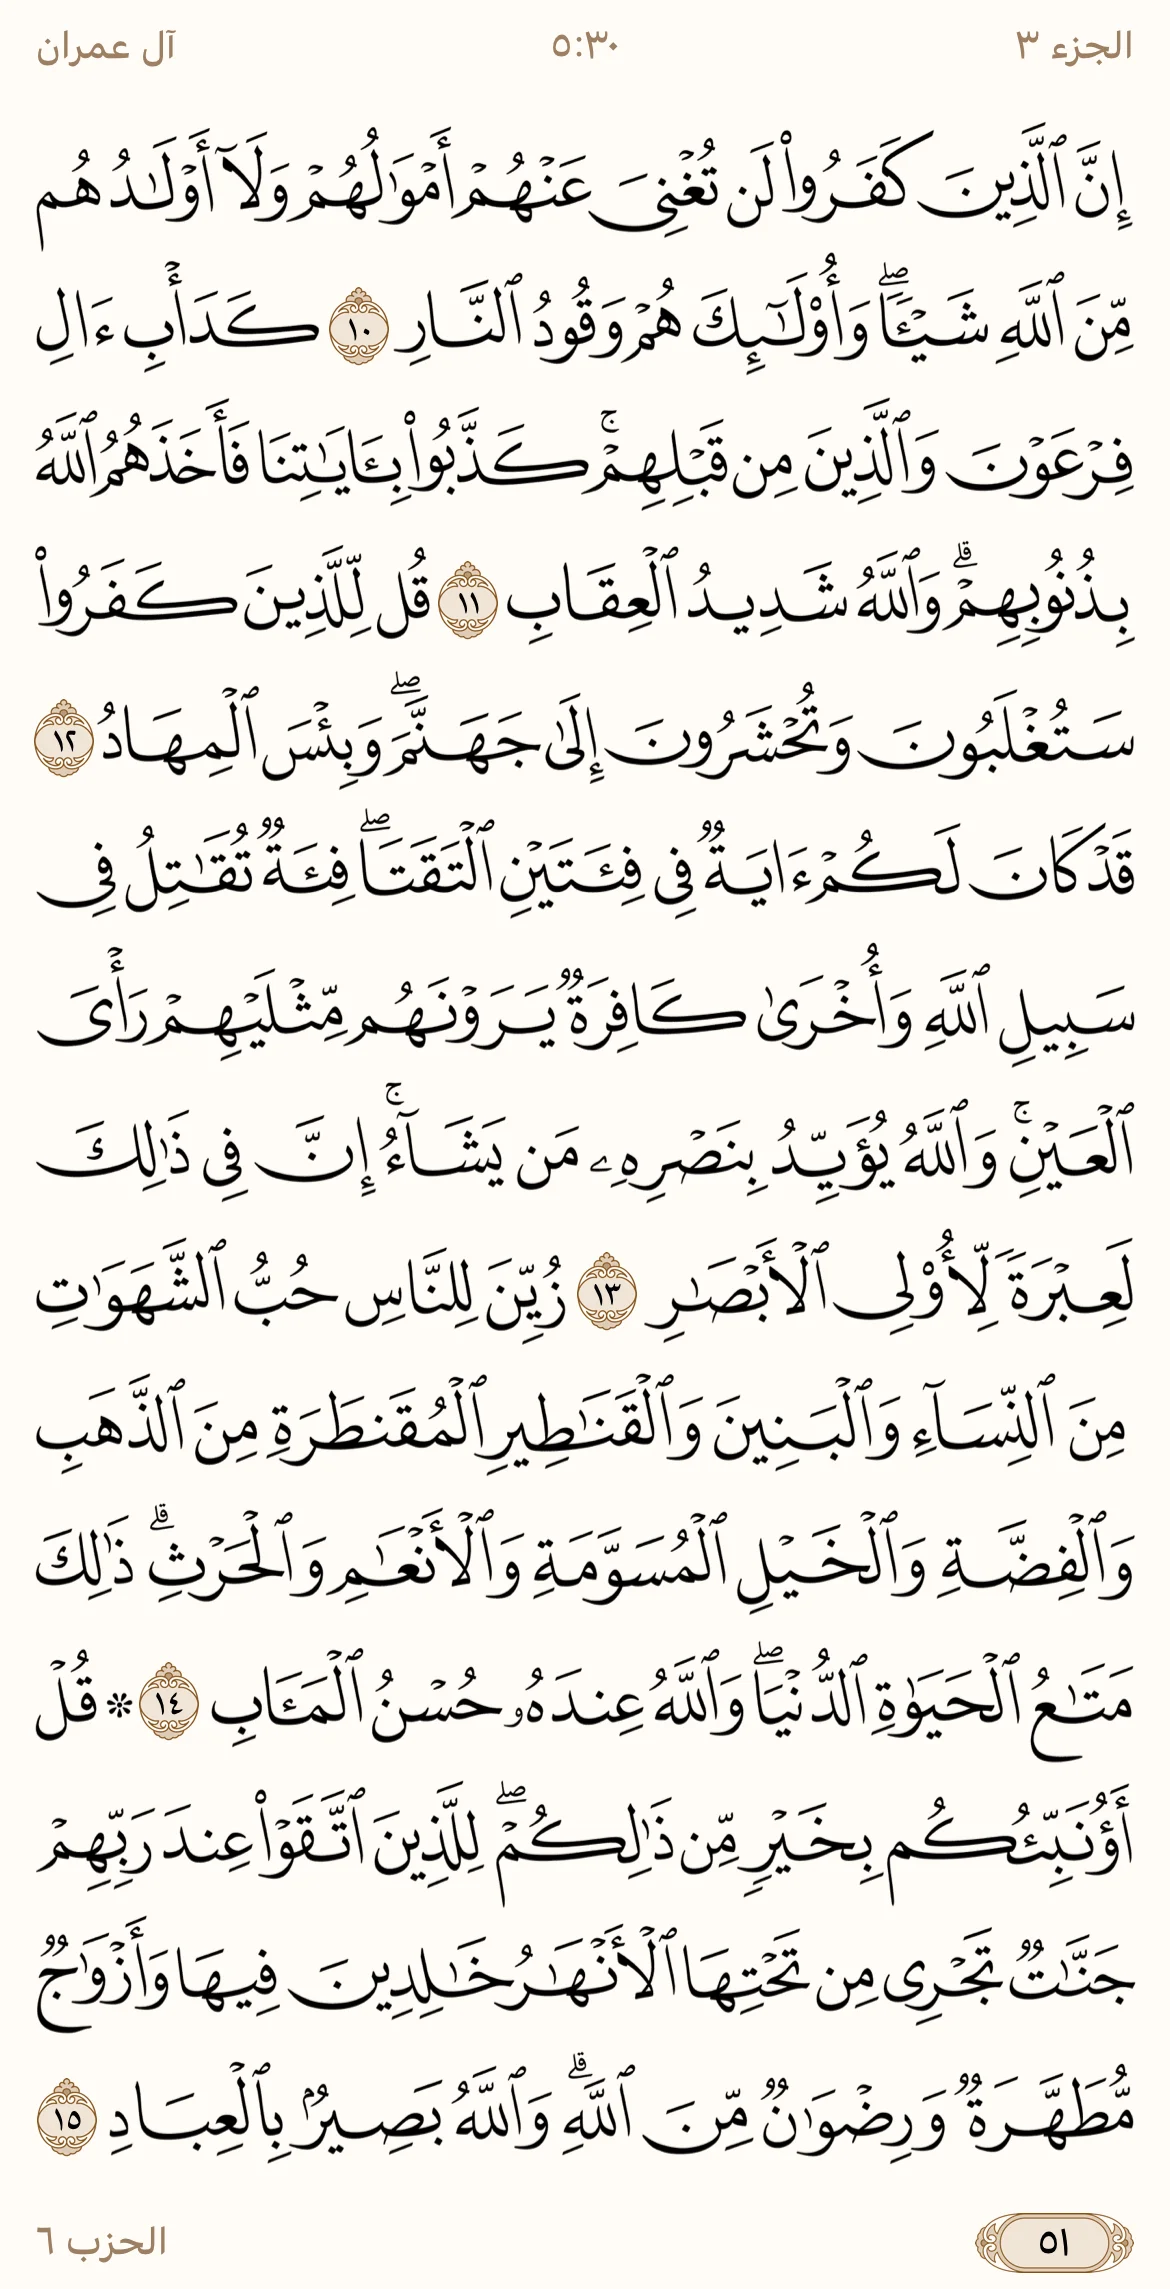 الجزء ٣
٥:٣٠
آل عمران
إِنَّ ٱلَّذِينَ كَفَرُوا۟ لَن تُغْنِىَ عَنْهُمْ أَمْوَٰلُهُمْ وَلَآ أَوْلَـٰدُهُم
مِّنَ ٱللَّهِ شَيْـًٔا ۖ وَأُو۟لَـٰٓئِكَ هُمْ وَقُودُ ٱلنَّارِ ١٠ كَدَأْبِ ءَالِ
فِرْعَوْنَ وَٱلَّذِينَ مِن قَبْلِهِمْ ۚ كَذَّبُوا۟ بِـَٔايَـٰتِنَا فَأَخَذَهُمُ ٱللَّهُ
بِذُنُوبِهِمْ ۗ وَٱللَّهُ شَدِيدُ ٱلْعِقَابِ ١١ قُل لِّلَّذِينَ كَفَرُوا۟
سَتُغْلَبُونَ وَتُحْشَرُونَ إِلَىٰ جَهَنَّمَ ۖ وَبِئْسَ ٱلْمِهَادُ ١٢
قَدْ كَانَ لَكُمْ ءَايَةٌ فِى فِئَتَيْنِ ٱلْتَقَتَا ۖ فِئَةٌ تُقَـٰتِلُ فِى
سَبِيلِ ٱللَّهِ وَأُخْرَىٰ كَافِرَةٌ يَرَوْنَهُم مِّثْلَيْهِمْ رَأْىَ
ٱلْعَيْنِ ۚ وَٱللَّهُ يُؤَيِّدُ بِنَصْرِهِۦ مَن يَشَآءُ ۚ إِنَّ فِى ذَٰلِكَ
لَعِبْرَةً لِّأُو۟لِى ٱلْأَبْصَـٰرِ ١٣ زُيِّنَ لِلنَّاسِ حُبُّ ٱلشَّهَوَٰتِ
مِنَ ٱلنِّسَآءِ وَٱلْبَنِينَ وَٱلْقَنَـٰطِيرِ ٱلْمُقَنطَرَةِ مِنَ ٱلذَّهَبِ
وَٱلْفِضَّةِ وَٱلْخَيْلِ ٱلْمُسَوَّمَةِ وَٱلْأَنْعَـٰمِ وَٱلْحَرْثِ ۗ ذَٰلِكَ
مَتَـٰعُ ٱلْحَيَوٰةِ ٱلدُّنْيَا ۖ وَٱللَّهُ عِندَهُۥ حُسْنُ ٱلْمَـَٔابِ ١٤ * قُلْ
أَؤُنَبِّئُكُم بِخَيْرٍ مِّن ذَٰلِكُمْ ۖ لِلَّذِينَ ٱتَّقَوْا۟ عِندَ رَبِّهِمْ
جَنَّـٰتٌ تَجْرِى مِن تَحْتِهَا ٱلْأَنْهَـٰرُ خَـٰلِدِينَ فِيهَا وَأَزْوَٰجٌ
مُّطَهَّرَةٌ وَرِضْوَٰنٌ مِّنَ ٱللَّهِ ۗ وَٱللَّهُ بَصِيرٌۢ بِٱلْعِبَادِ ١٥
٥١
الحزب ٦